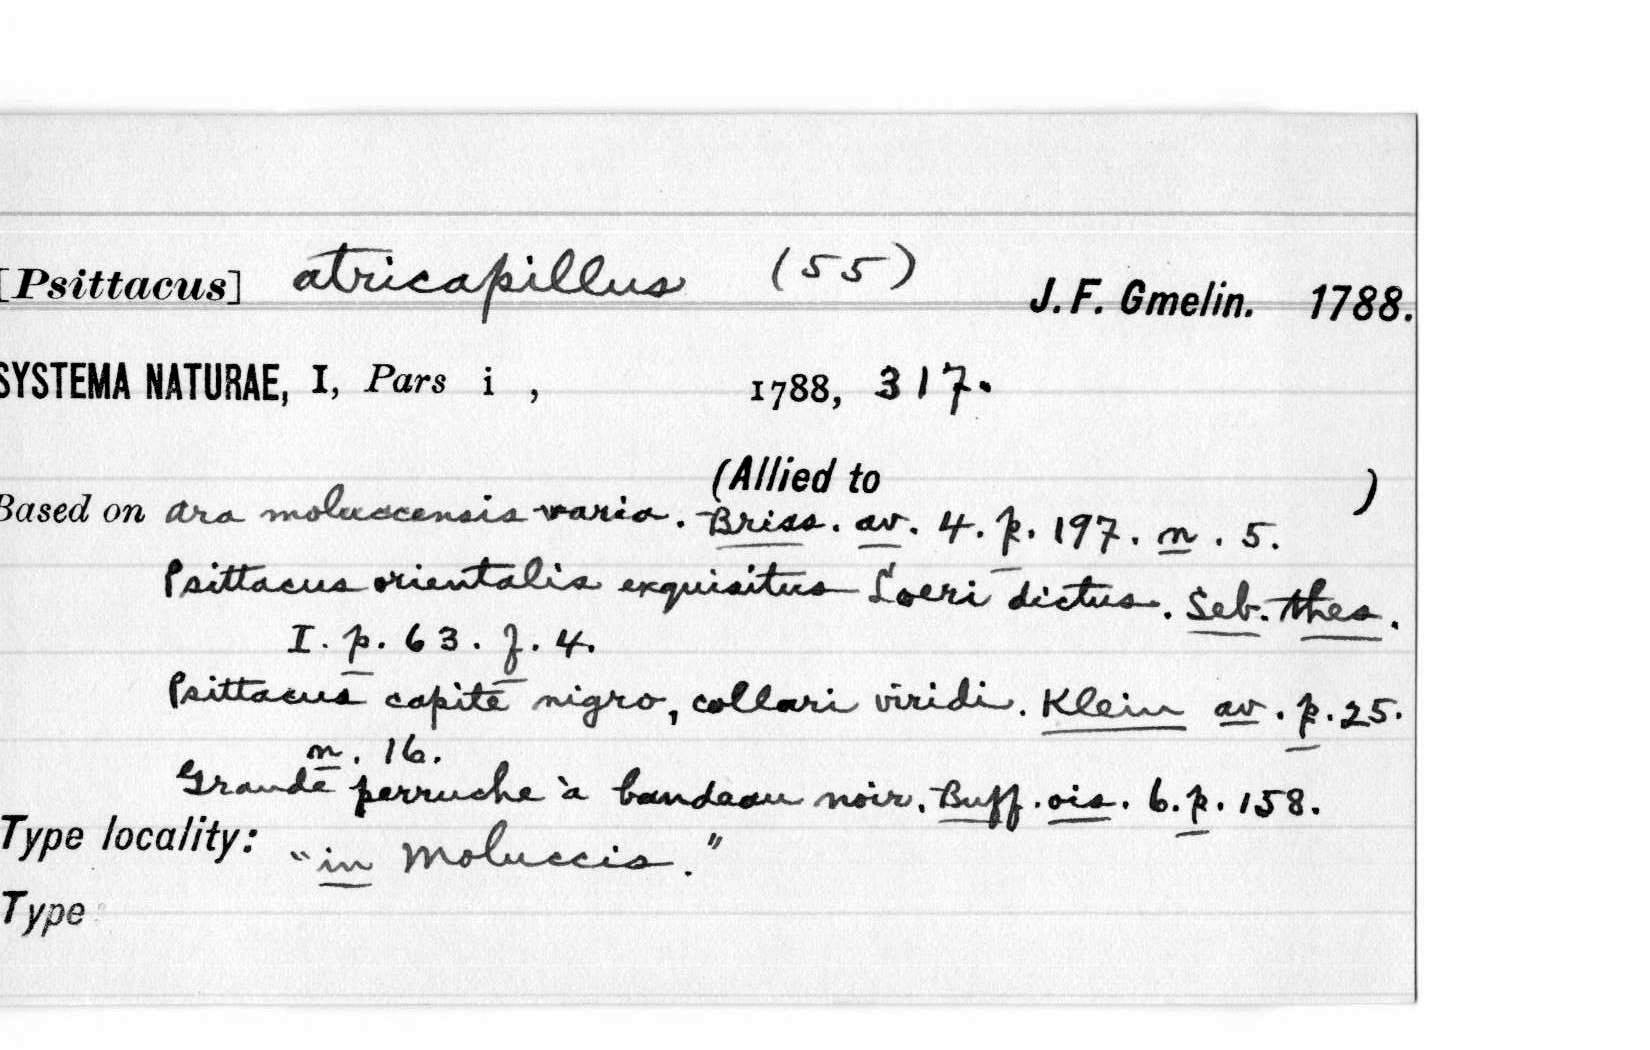 [Psittacus] atricapillus (55) J. F. Gmelin. 1788.
SYSTEMA NATURAE, I, Pars i , 1788, 317.
(Allied to )
Based on Ara moluccensis varia. Briss. av. 4. p. 197. n. 5.
Psittacus orientalis exquisitus Loeri dictus. Seb. thes.
I. p. 63. f. 4.
Psittacus capite nigro, collari viridi. Klein av. p. 25.
n. 16.
Grande perruche à bandeau noir. Buff. ois. 6. p. 158.
Type locality: "in Moluccis."
Type